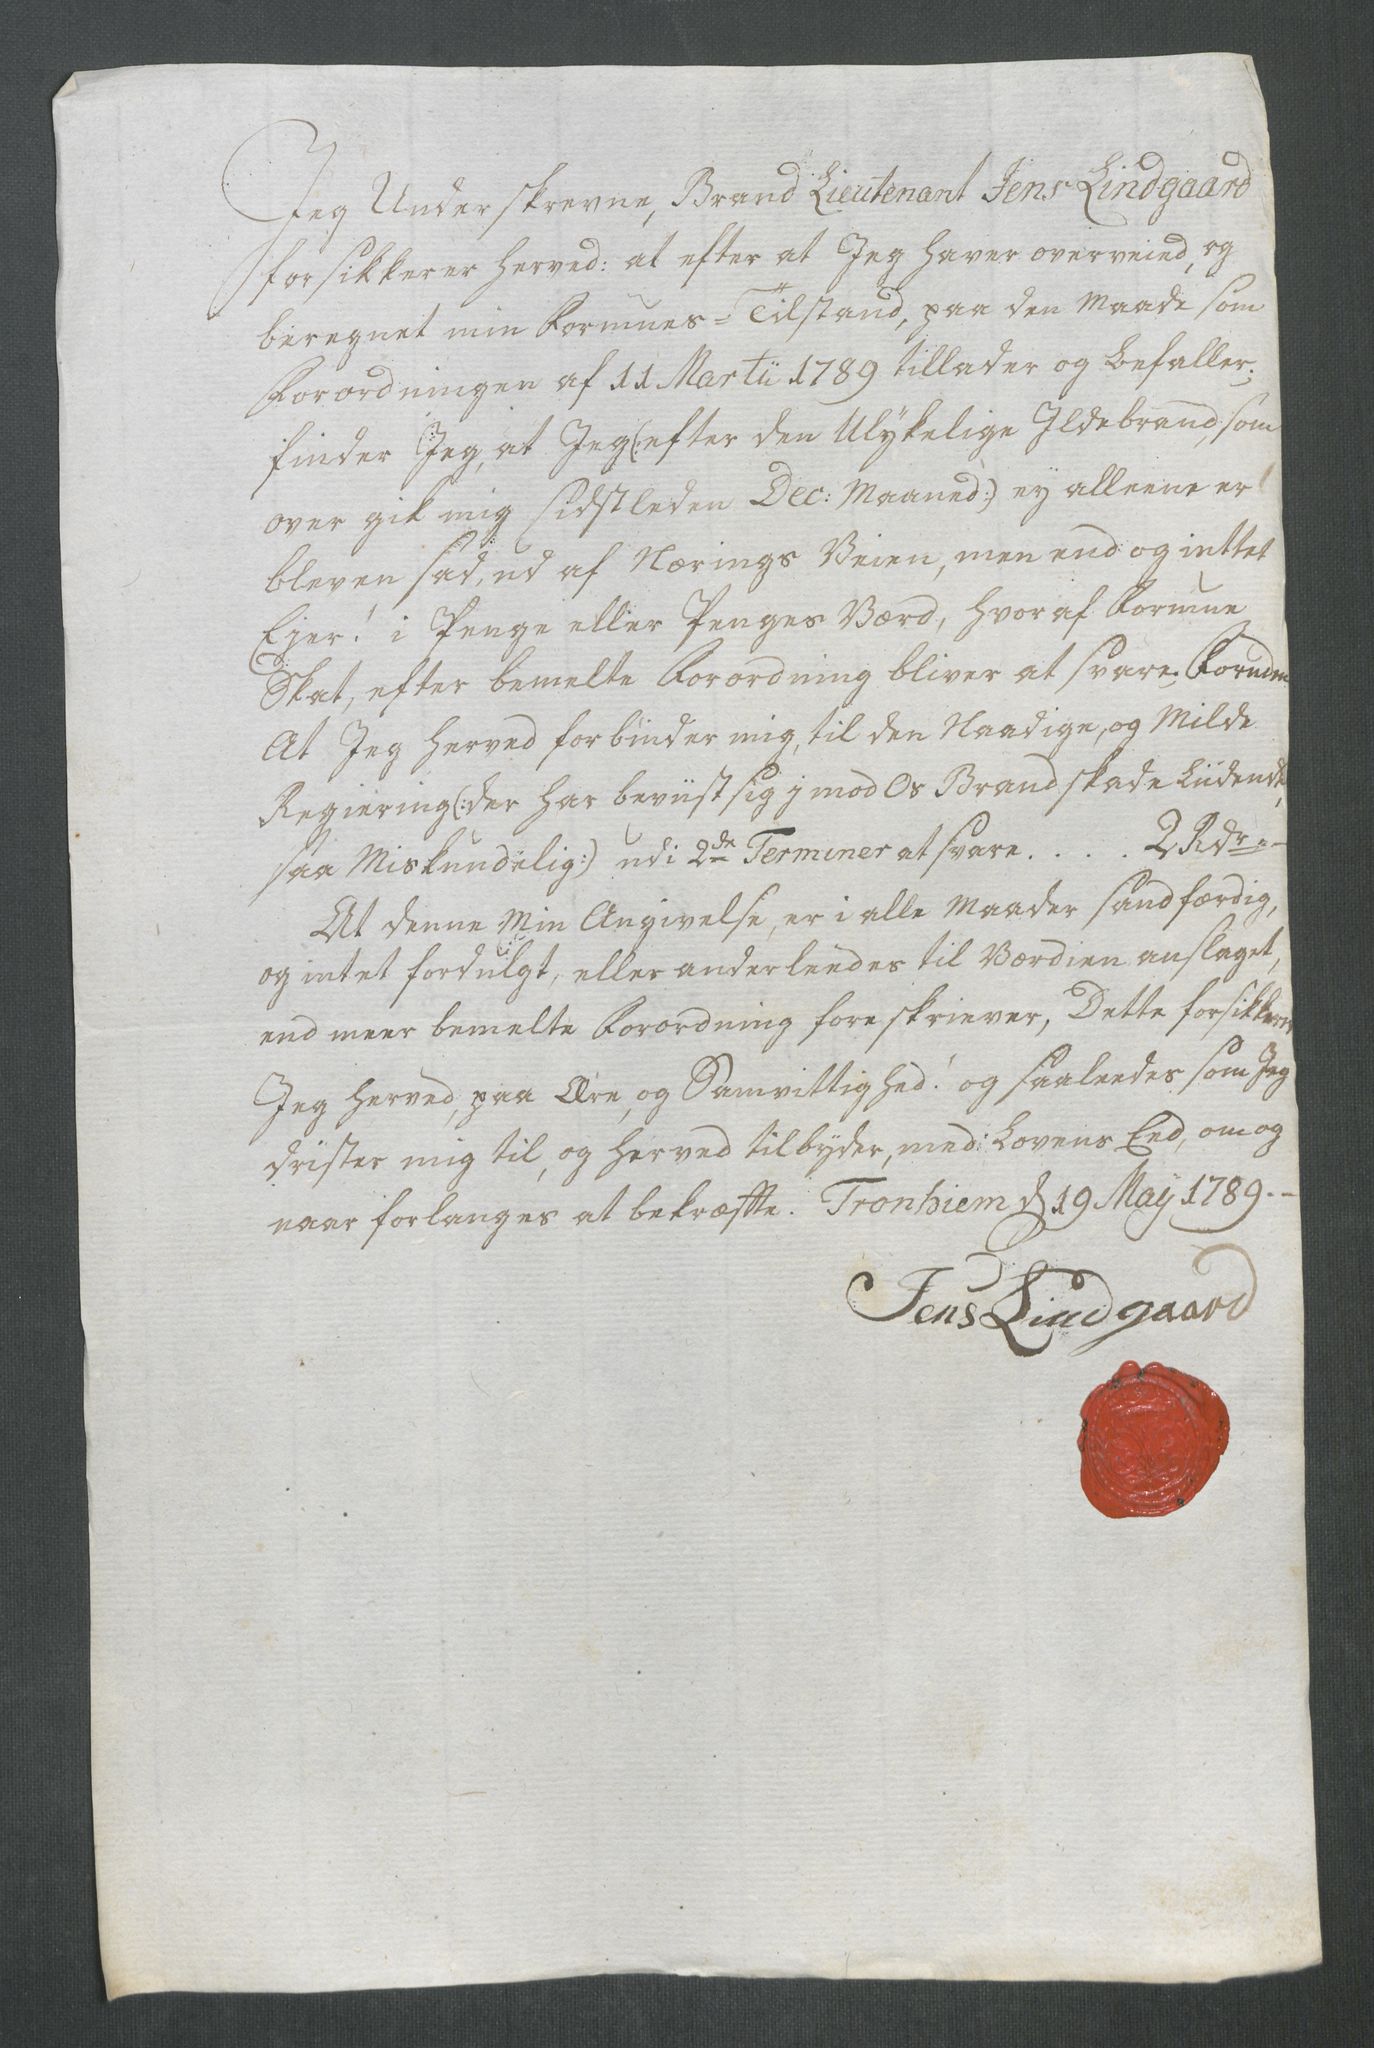 Jeg Underskrevne, Brand Lieutenant Jens Lindgaard
forsikkerer herved: at efter at Jeg haver overveied, og
beregnet min Formues-Tilstand, paa den Maade som
Forordningen af 11 Martii 1789 tillader og befaller;
finder Jeg, at Jeg (: efter den Ulykelige Ildebrand, som
over gik mig sidstleden Dec: Maaned :) ey alleene er
bleven sad, ud af Nærings Veien, men end og inttet
Ejer! i Penge eller Penges Værd, hvoraf Formue
Skat, efter bemelte Forordning bliver at svare.
At Jeg herved forbinder mig, til den Naadige, og Milde
Regiering (: der har beviist sig j mod Os Brandskade Liidende,
saa Miskundelig :) udi 2de Terminer at svare. . . . . 2 Rdr
At denne Min Angivelse, er i alle Maader sandfærdig,
og intet fordulgt, eller anderleedes til Værdien anslaget,
end meer bemelte Forordning foreskriever, Dette forsikkerer
Jeg herved, paa Ære, og Samvittighed! og saaleedes som Jeg
drister mig til, og herved tilbyder, med Lovens Eed, om og
naar forlanges at bekræffte. Tronhiem d 19 Maÿ 1789.
Jens Lindgaard